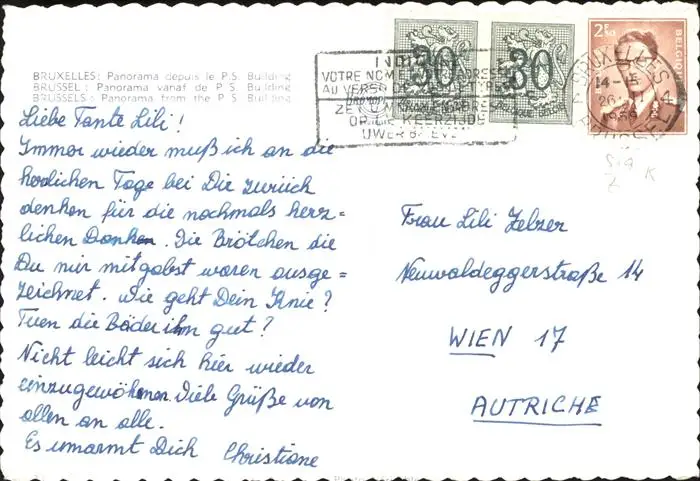 BRUXELLES: Panorama depuis le P.S. Building
BRUSSEL: Panorama vanaf de P.S. Building
BRUSSELS: Panorama from the P.S. Building
Liebe Tante Lili!
Immer wieder muß ich an die
herrlichen Tage bei Dir zurück
denken für die nochmals herz=
lichen Danken. Die Brötchen die
Du mir mitgabst waren ausge=
zeichnet. Wie geht Dein Knie?
Tuen die Bäder ihm gut?
Nicht leicht sich hier wieder
einzugewöhnen. Viele Grüße von
allen an alle.
Es umarmt Dich Christiane
30
30
2F50
BELGIE
VOTRE NOM
ADRESSE
AU VERSO
OP DE KEERZIJDE
UWER
BRUXELLES
14-15
26
1959
BRUSSEL
Frau Lili Zelzer
Neuwaldeggerstraße 14
WIEN 17
AUTRICHE